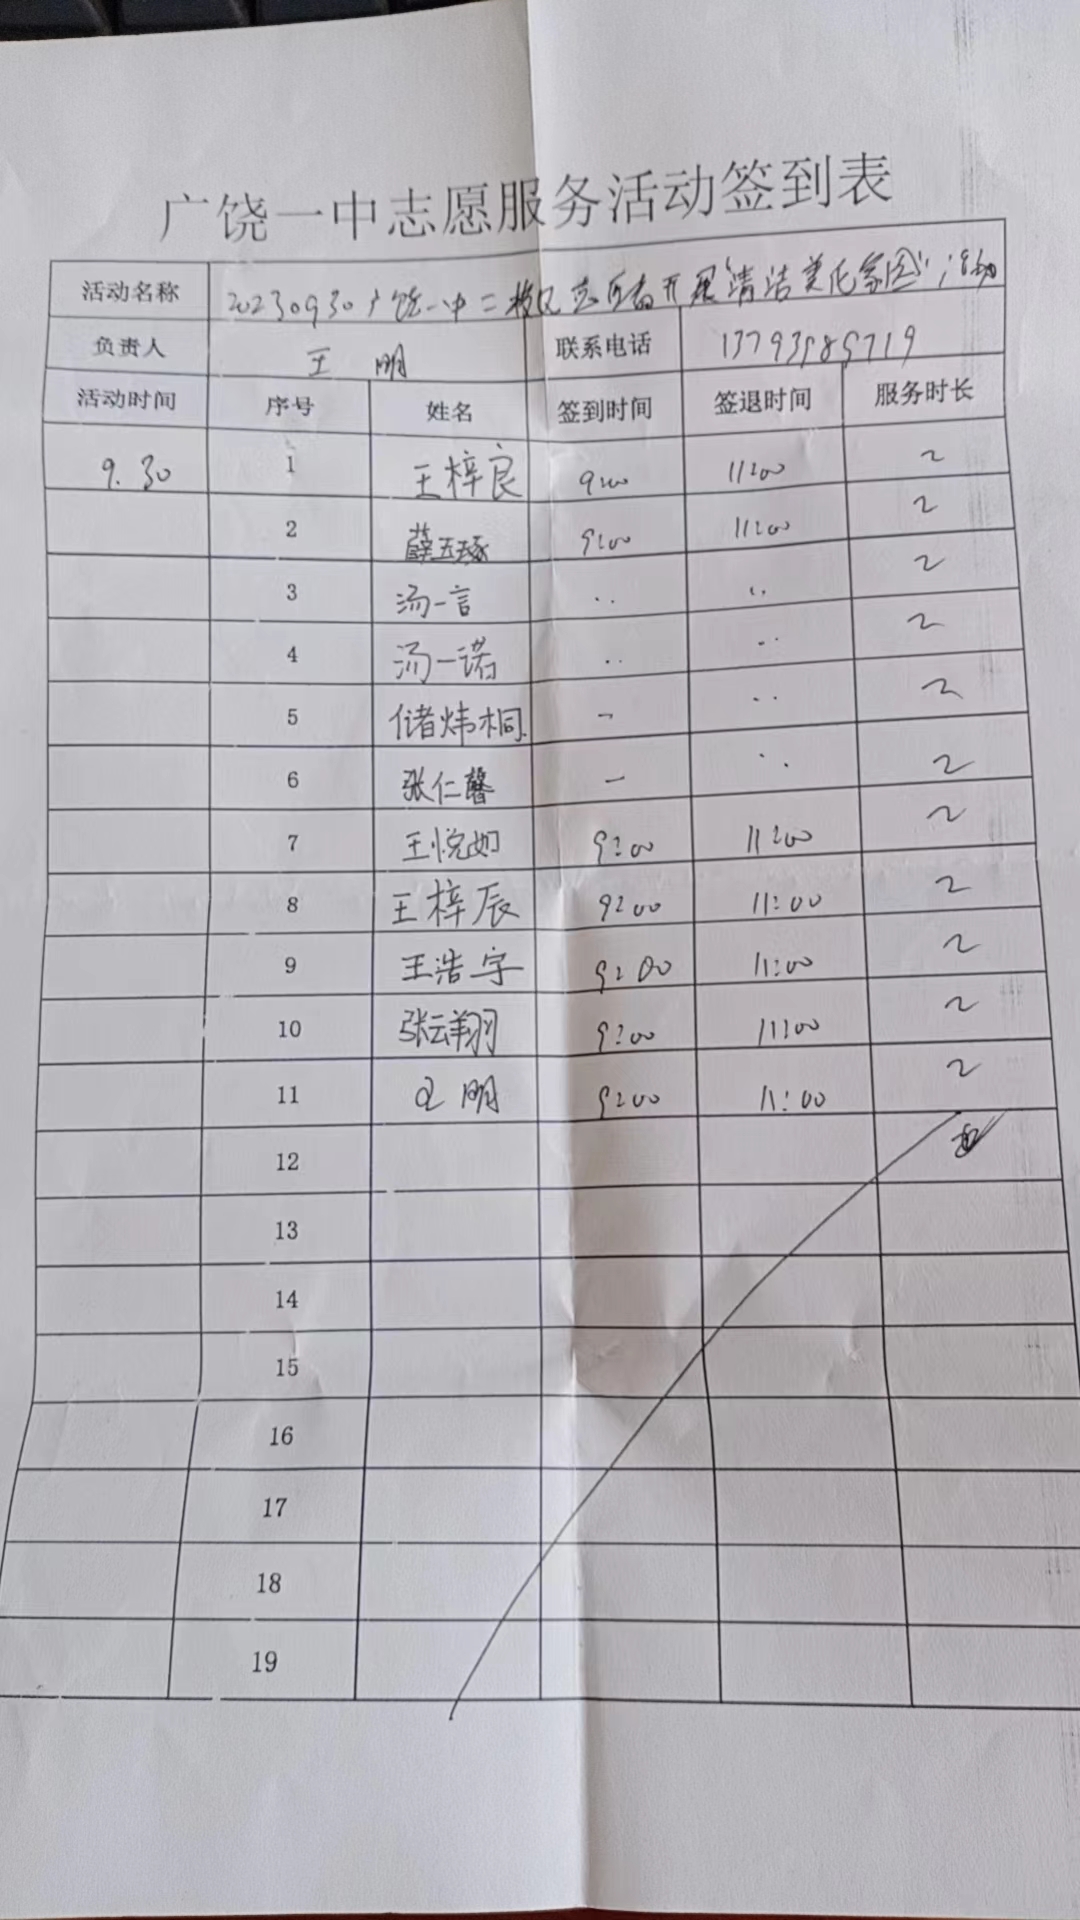 广饶一中志愿服务活动签到表
活动名称 20230930广饶一中二校区志愿者开展"清洁美化家园"活动
负责人 王明 联系电话 13793989719
活动时间 序号 姓名 签到时间 签退时间 服务时长
9.30 1 王梓良 9:00 11:00 2
2 薛玉琢 9:00 11:00 2
3 汤一言 .. .. 2
4 汤一诺 .. .. 2
5 储炜桐 - .. 2
6 张仁馨 - .. 2
7 王悦如 9:00 11:00 2
8 王梓辰 9:00 11:00 2
9 王浩宇 9:00 11:00 2
10 张云翔 9:00 11:00 2
11 王明 9:00 11:00 2
12
13
14
15
16
17
18
19